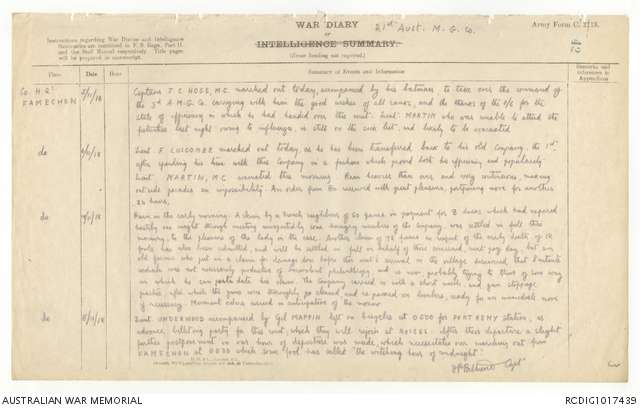 WAR DIARY
or
INTELLIGENCE SUMMARY.
(Erase heading not required.)
21st Aust. M. G. Co.
Army Form C. 2118.
Instructions regarding War Diaries and Intelligence
Summaries are contained in F. S. Regs., Part II.
and the Staff Manual respectively. Title pages
will be prepared in manuscript.
Place
Date
Hour
Summary of Events and Information
Remarks and
references to
Appendices
Co. H.Q.
FAMECHON
Captain T. C. HOSE, M.C. marched out today, accompanied by his batman to take over the command of
the 3rd A.M.G. Co. carrying with him the good wishes of all ranks, and the thanks of the O/C for the
state of efficiency in which he had handed over this unit. Lieut. MARTIN who was unable to attend the
festivities last night owing to influenza, is still on the sick list, and likely to be evacuated
do
Lieut F. LUSCOMBE marched out today, as he has been transferred back to his old Company, the 1st,
after spending his time with this Company in a fashion which proved both his efficiency and popularity
Lieut MARTIN, M.C evacuated this morning. Rain heavier than ever and very continuous, making
outside parades an impossibility. An order from Bn received with great pleasure, postponing move for another
24 hours.
do
Rain in the early morning. A claim by a French neighbour of 60 francs in payment for 8 ducks which had expired
hastily one night through meeting unexpectedly some hungry members of the Company, was settled in full this
morning, to the pleasure of the lady in the case. Another claim of
has also been admitted, and will be settled in full on behalf of those concerned, next pay day, but an
old farmer who put in a claim for damage done before this unit's arrival in the village discovered that
and is now probably trying to think of some way
in which he can postdate his claim. The Company carried on with a short march and gun stoppage
practice, after which the guns were thoroughly cleaned, and re-packed on limbers, ready for an immediate move
if necessary. Movement orders issued in anticipation of the move
do
Lieut UNDERWOOD accompanied by Cpl MAPPIN left on bicycles at 0600 for PONT REMY station, as
advance billeting party for this unit, which they will rejoin at
After their departure a slight
further postponement in our hour of departure was made, which necessitates our marching out from
FAMECHON at 0030 which some fool has called "the witching hour of midnight"
Capt
AUSTRALIAN WAR MEMORIAL
RCDIG1017439